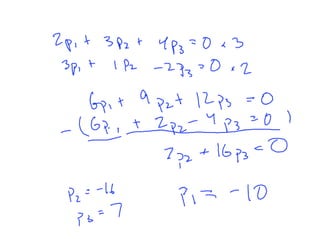 2p₁ + 3p₂ + 4p₃ = 0 × 3
3p₁ + 1p₂ - 2p₃ = 0 × 2
6p₁ + 9p₂ + 12p₃ = 0
- (6p₁ + 2p₂ - 4p₃ = 0)
7p₂ + 16p₃ = 0
p₂ = -16
p₃ = 7
p₁ = -10